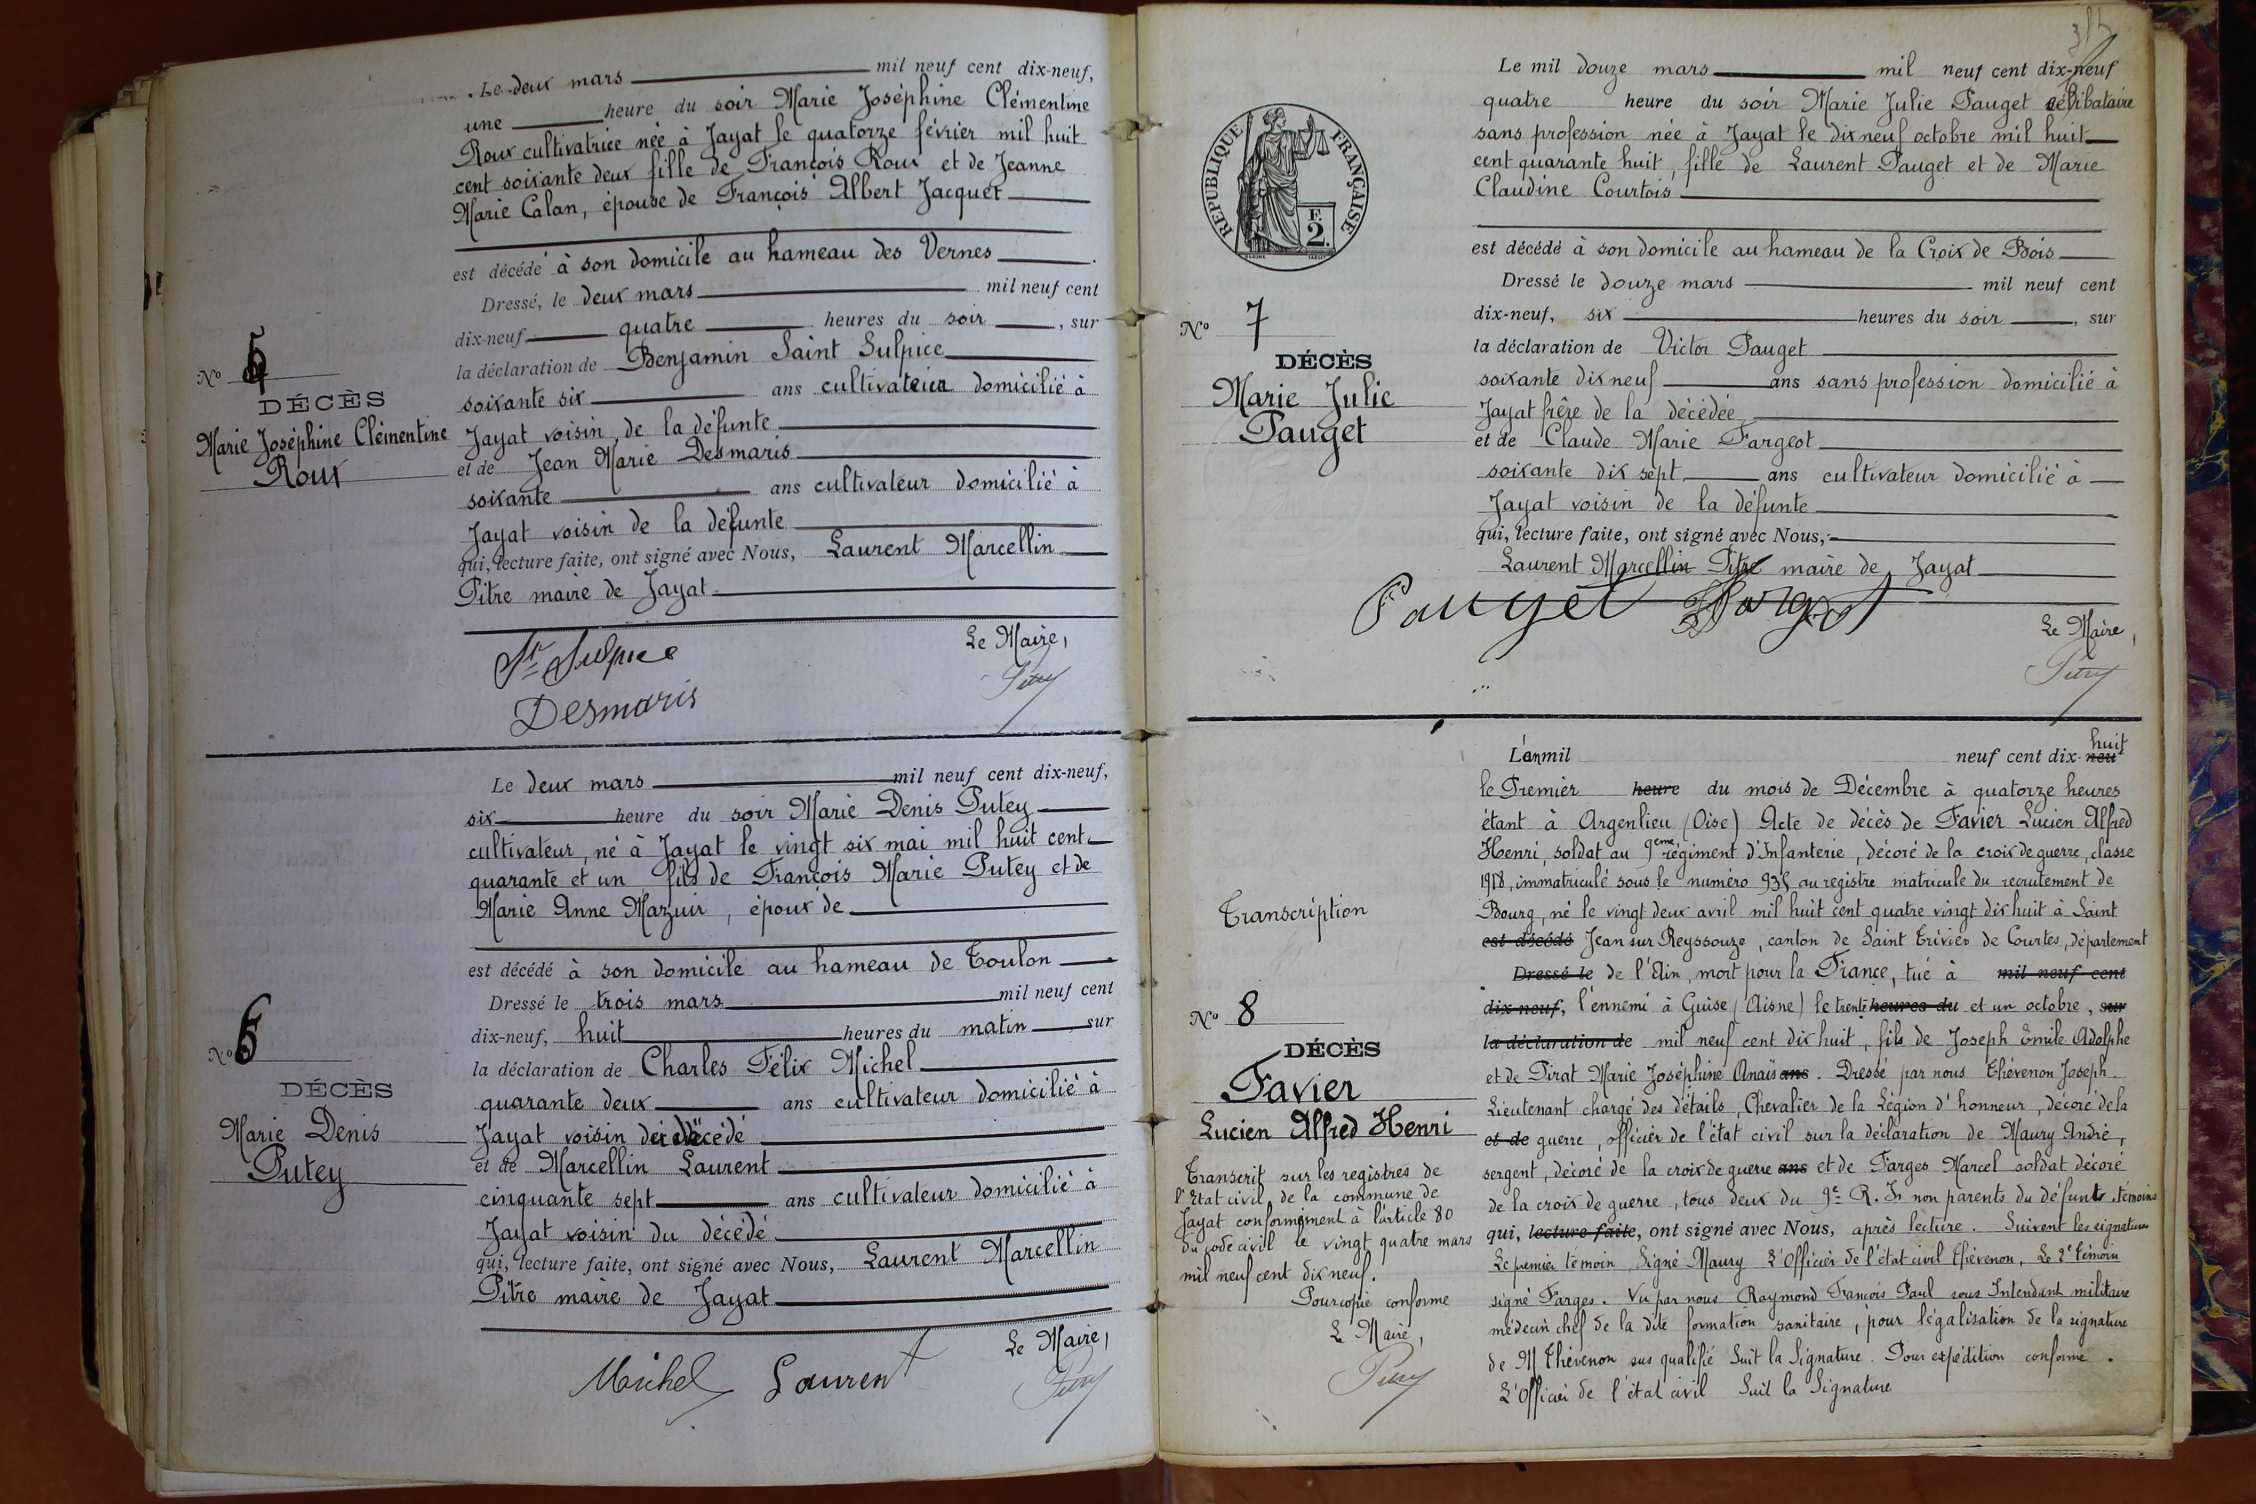 Le deux mars mil neuf cent dix-neuf,
une heure du soir Marie Joséphine Clémentine
Roux cultivatrice née à Jayat le quatorze février mil huit
cent soixante deux fille de François Roux et de Jeanne
Marie Calan, épouse de François Albert Jacquet
est décédé à son domicile au hameau des Vernes
Dressé, le deux mars mil neuf cent
dix-neuf quatre heures du soir, sur
la déclaration de Benjamin Saint Sulpice
soixante six ans cultivateur domicilié à
Jayat voisin de la défunte
et de Jean Marie Desmaris
soixante ans cultivateur domicilié à
Jayat voisin de la défunte
qui, lecture faite, ont signé avec Nous, Laurent Marcellin
Pitre maire de Jayat
Nº 5
DÉCÈS
Marie Joséphine Clémentine
Roux
St Sulpice
Le Maire,
Desmaris
Le deux mars mil neuf cent dix-neuf,
six heure du soir Marie Denis Putey
cultivateur, né à Jayat le vingt six mai mil huit cent
quarante et un fils de François Marie Putey et de
Marie Anne Mazuir, époux de
est décédé à son domicile au hameau de Toulon
Dressé le trois mars mil neuf cent
dix-neuf, huit heures du matin, sur
la déclaration de Charles Félix Michel
quarante deux ans cultivateur domicilié à
Jayat voisin décédé
et de Marcellin Laurent
cinquante sept ans cultivateur domicilié à
Jayat voisin du décédé
qui, lecture faite, ont signé avec Nous, Laurent Marcellin
Pitre maire de Jayat
Nº 6
DÉCÈS
Marie Denis
Putey
Le Maire,
Michel Laurent
Le mil douze mars mil neuf cent dix-neuf
quatre heure du soir Marie Julie Pauget célibataire
sans profession née à Jayat le dix neuf octobre mil huit
cent quarante huit, fille de Laurent Pauget et de Marie
Claudine Courtois
est décédé à son domicile au hameau de la Croix de Bois
Dressé le douze mars mil neuf cent
dix-neuf, six heures du soir, sur
la déclaration de Victor Pauget
soixante dix neuf ans sans profession domicilié à
Jayat frère de la décédée
et de Claude Marie Fargeot
soixante dix sept ans cultivateur domicilié à
Jayat voisin de la défunte
qui, lecture faite, ont signé avec Nous,
Laurent Marcellin Pitre maire de Jayat
RÉPUBLIQUE FRANÇAISE
F.
2.
Nº 7
DÉCÈS
Marie Julie
Pauget
Pauget Fargeot
Le Maire,
L'an mil neuf cent dix-neu huit
le Premier heure du mois de Décembre à quatorze heures
étant à Argenlieu (Oise) Acte de décès de Favier Lucien Alfred
Henri, soldat au 9eme régiment d'Infanterie, décoré de la croix de guerre, classe
1918, immatriculé sous le numéro 935 au registre matricule du recrutement de
Bourg, né le vingt deux avril mil huit cent quatre vingt dix huit à Saint
est décédé Jean sur Reyssouze, canton de Saint Trivier de Courtes, département
Dressé le de l'Ain, mort pour la France, tué à mil neuf cent
dix-neuf, l'ennemi à Guise (Aisne) le trente heures du et un octobre, sur
la déclaration de mil neuf cent dix huit, fils de Joseph Emile Adolphe
et de Pirat Marie Joséphine Anaïs ans. Dressé par nous Thévenon Joseph
Lieutenant chargé des détails, Chevalier de la Légion d'honneur, décoré de la
et de guerre, officier de l'état civil sur la déclaration de Maury André,
sergent, décoré de la croix de guerre ans et de Farges Marcel soldat décoré
de la croix de guerre, tous deux du 9e R. In non parents du défunt, témoins
qui, lecture faite, ont signé avec Nous, après lecture. Suivent les signatures
Le premier témoin Signé Maury L'Officier de l'état civil Thévenon. Le 2e témoin
signé Farges. Vu par nous Raymond François Paul sous Intendant militaire
médecin chef de la dite formation sanitaire, pour légalisation de la signature
de M Thévenon sus qualifié Suit la Signature. Pour expédition conforme.
L'Officier de l'état civil Suit la Signature
Transcription
Nº 8
DÉCÈS
Favier
Lucien Alfred Henri
Transcrit sur les registres de
l'Etat civil, de la commune de
Jayat conformément à l'article 80
du code civil le vingt quatre mars
mil neuf cent dix neuf.
Pour copie conforme
Le Maire,